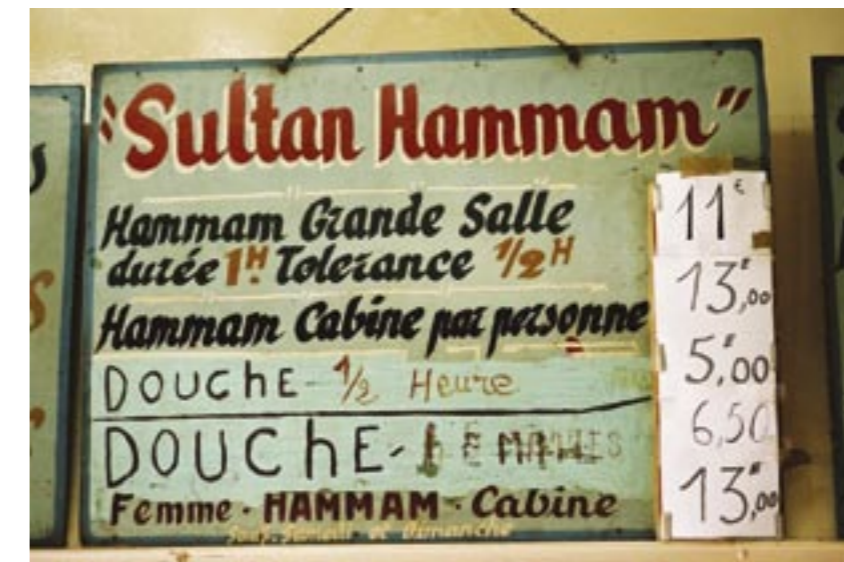 "Sultan Hammam"
Hammam Grande Salle 11€
durée 1H Tolerance 1/2H
Hammam Cabine par personne 13,00
DOUChE - 1/2 Heure 5,00
DOUChE - FEMMES 6,50
Femme · HAMMAM · Cabine 13,00
Samedi et Dimanche